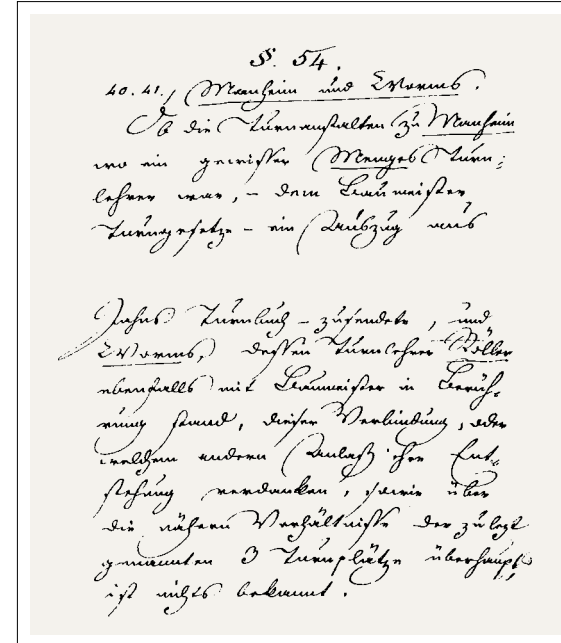 §. 54.
40. 41., Manheim und Worms.
Ob die Turnanstalten zu Manheim
wo ein gewisser Menges Turn-
lehrer war, – dem Baumeister
Turngesetze – ein Auszug aus
Jahns Turnbuch – zusendete, und
Worms, dessen Turnlehrer Köller
ebenfalls mit Baumeister in Berüh-
rung stand, dieser Verbindung, oder
welchem andern Anlaß ihre Ent-
stehung verdanken, sowie über
die nähern Verhältnisse der zuletzt
genannten 3 Turnplätze überhaupt,
ist nichts bekannt.